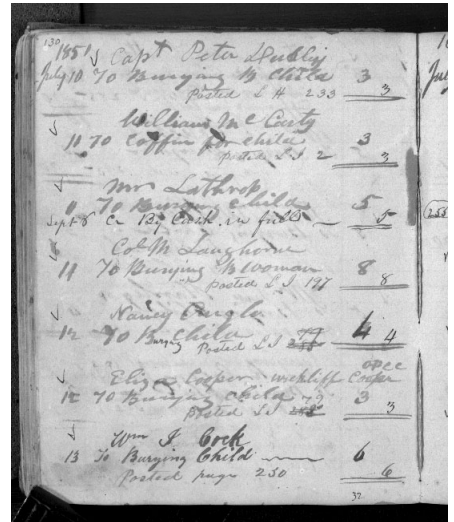 130
1851 Capt Peter Dudley
July 10 To Burying B Child 3
Posted L H 233 3
William McCarty
11 To Coffin for child 3
Posted L J 2 3
Mr Lathrop
11 To Burying Child 5
Sept 8 Cr By Cash in full 5
Col M Langhorne
11 To Burying B Woman 8
Posted L J 197 8
Nancy
12 To Burying Child 4
Posted L J 79 4
Eliza Cooper Wickliff Cooper
12 To Burying child 3
Posted L J 79 3
Wm J Cock
13 To Burying Child 6
Posted page 250 6
32